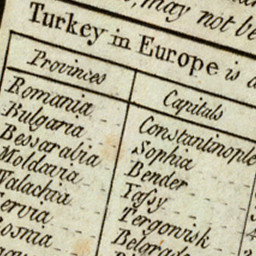 may not be
Turkey in Europe is
Provinces Capitals
Romania Constantinople
Bulgaria Sophia
Bessarabia Bender
Moldavia Yassy
Walachia Tergovisk
Servia Belgrade
Bosnia